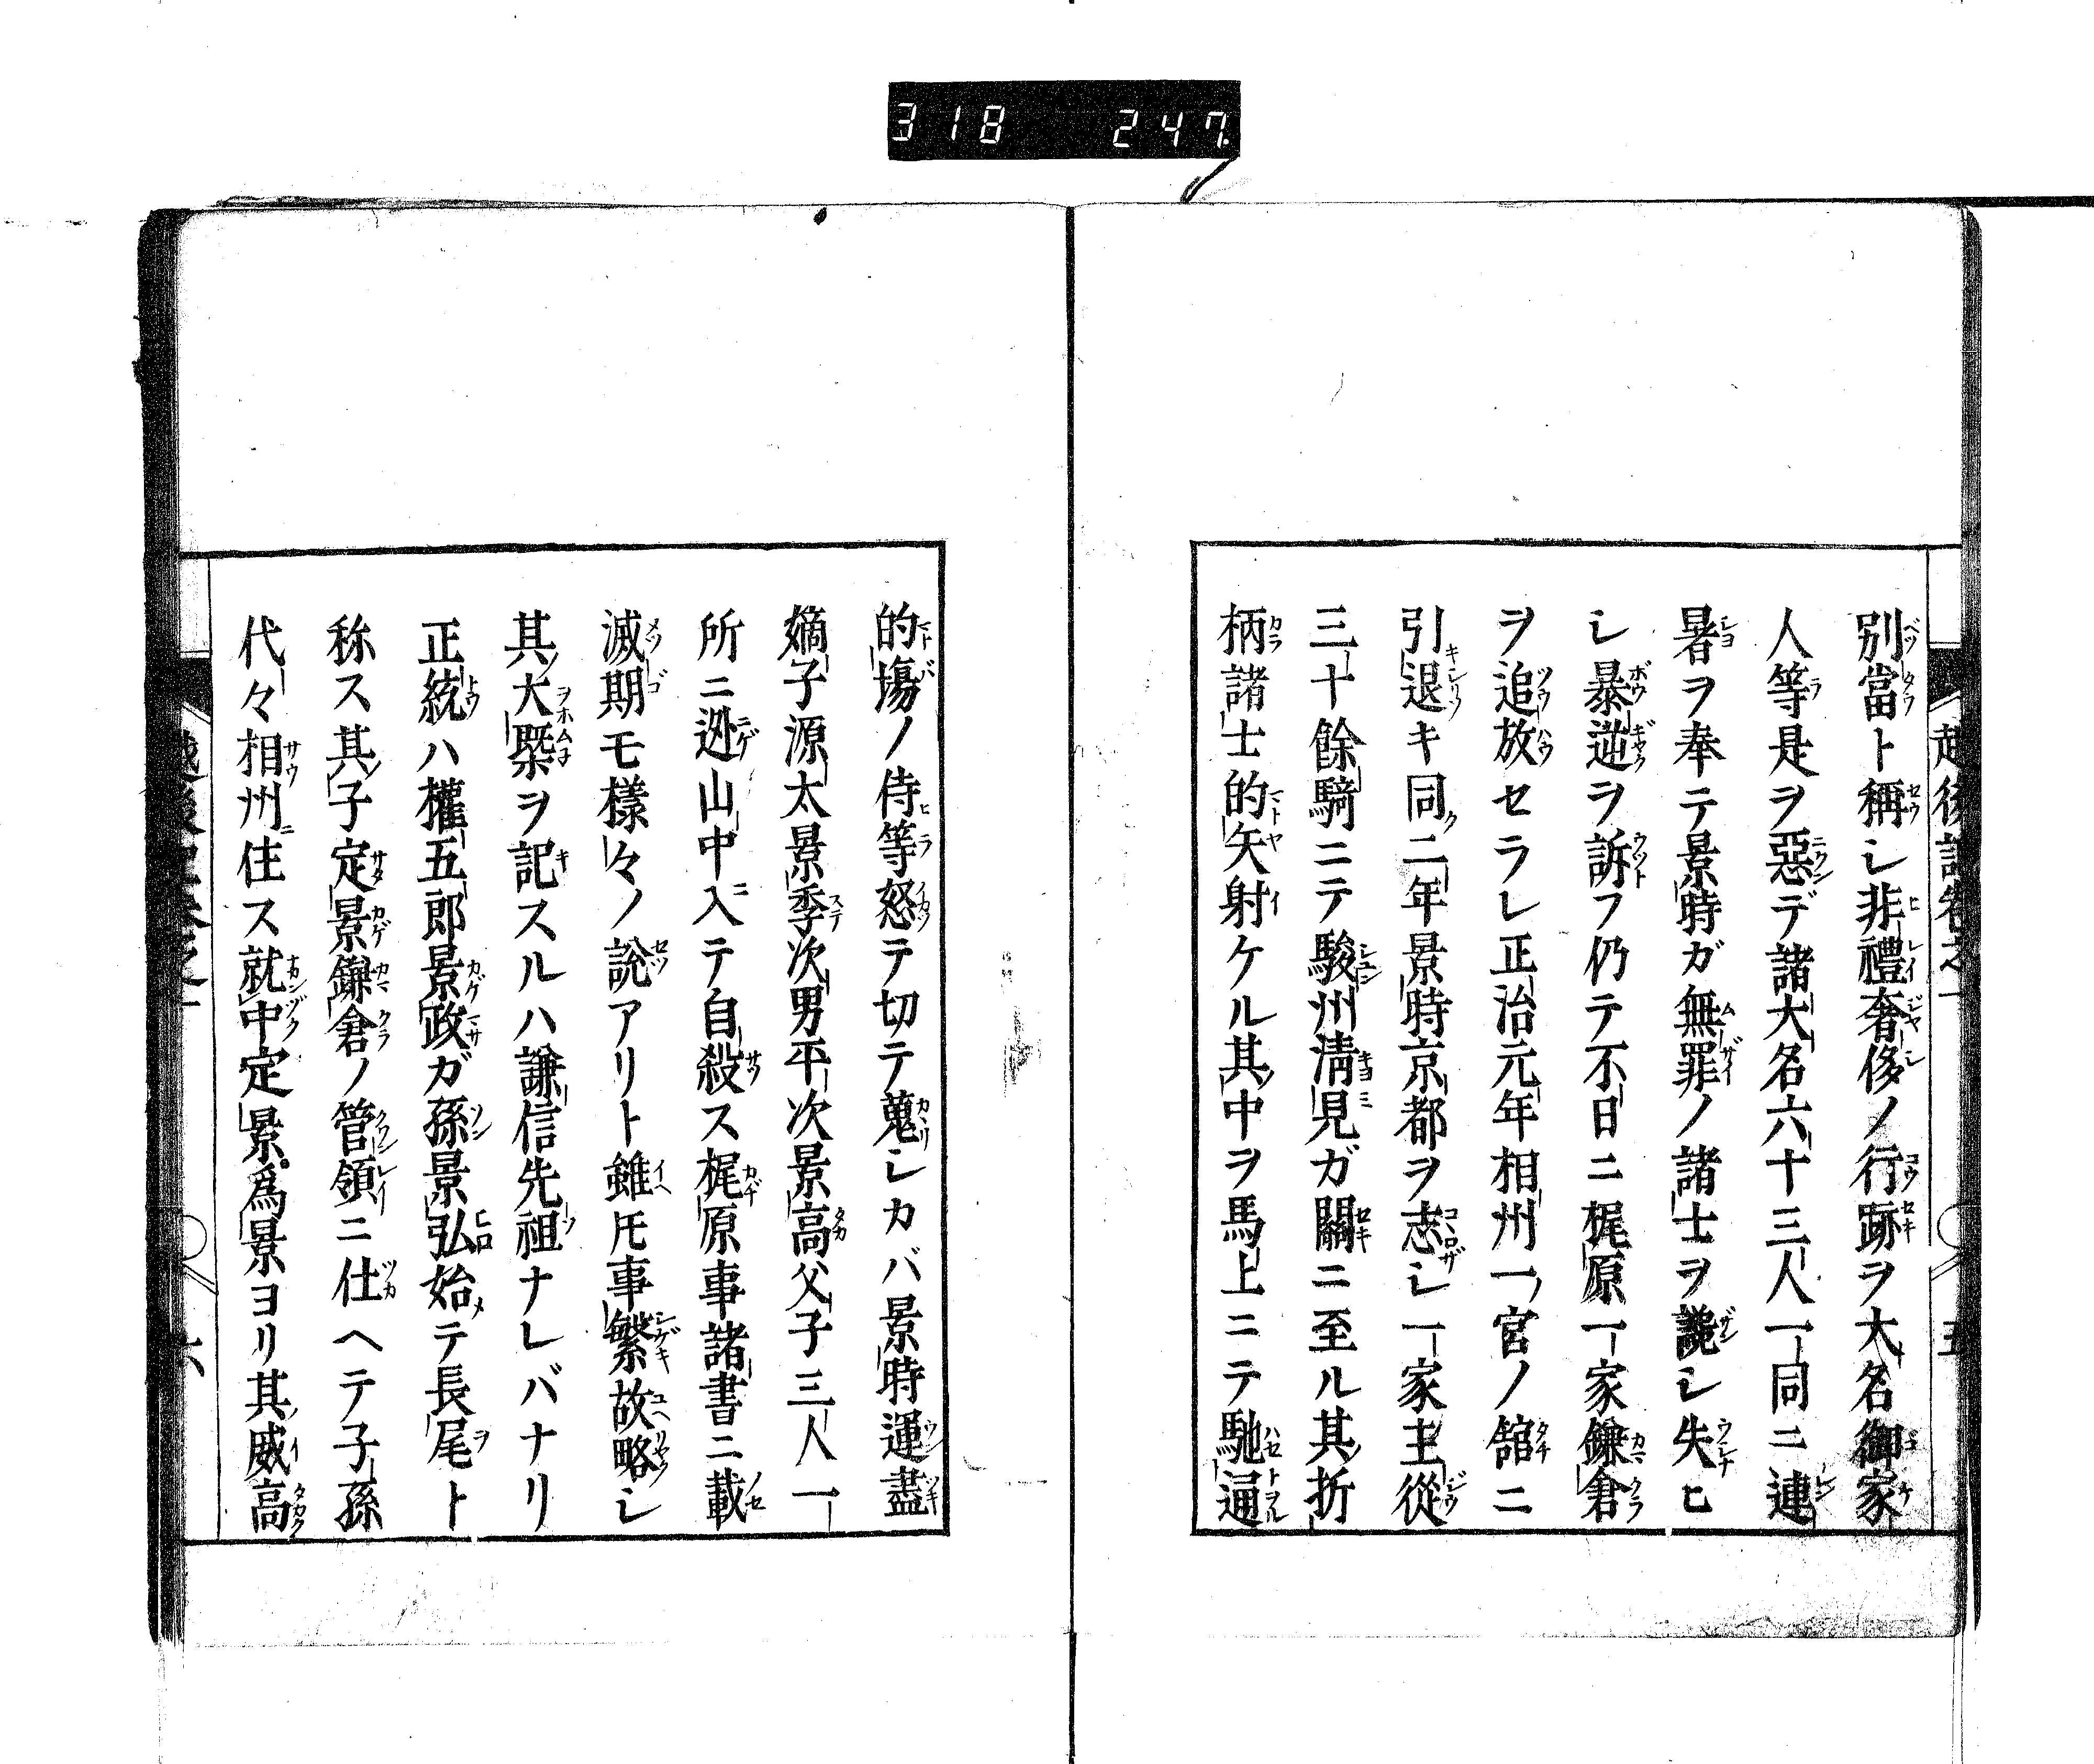 318 247
越後記卷之一 五
別當ト稱シ非禮奢侈ノ行跡ヲ大名御家
人等是ヲ惡デ諸大名六十三人一同ニ連
暑ヲ奉テ景時ガ無罪ノ諸士ヲ讒シ失ヒ
シ暴逆ヲ訴フ仍テ不日ニ梶原一家鎌倉
ヲ追放セラレ正治元年相州一宮ノ舘ニ
引退キ同二年景時京都ヲ志シ一家主從
三十餘騎ニテ駿州淸見ガ關ニ至ル其折
柄諸士的矢射ケル其中ヲ馬上ニテ馳通
的場ノ侍等怒テ切テ蒐シカバ景時運盡
嫡子源太景季次男平次景高父子三人一
所ニ迯山中入テ自殺ス梶原事諸書ニ載
滅期モ樣々ノ說アリト雖モ事繁故略シ
其大槩ヲ記スルハ謙信先祖ナレバナリ
正統ハ權五郎景政ガ孫景弘始テ長尾ト
称ス其子定景鎌倉ノ管領ニ仕ヘテ子孫
代々相州住ス就中定景爲景ヨリ其威高
六